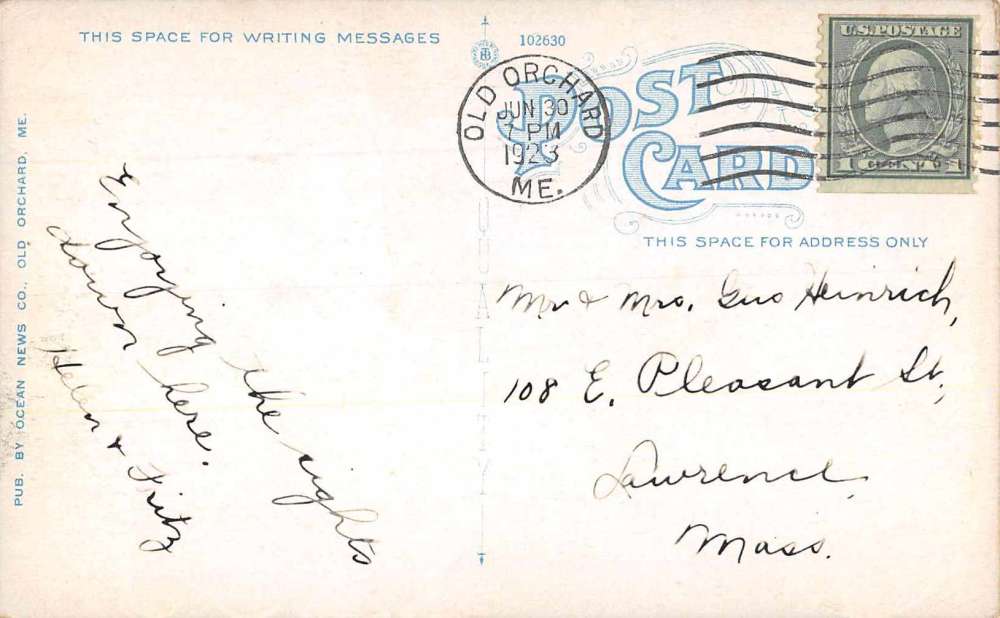 THIS SPACE FOR WRITING MESSAGES
102630
POST
CARD
OLD ORCHARD
JUN 30
7 PM
1923
ME.
U.S. POSTAGE
1 CENT 1
THIS SPACE FOR ADDRESS ONLY
PUB. BY OCEAN NEWS CO., OLD ORCHARD, ME.
Enjoying the sights
down here.
Helen & Fritz
Mr & Mrs. Gus Heinrich,
108 E. Pleasant St,
Lawrence,
Mass.